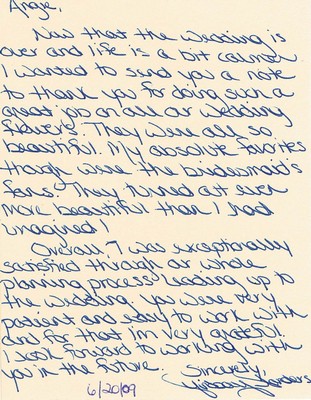 Angie,
Now that the wedding is
over and life is a bit calmer
I wanted to send you a note
to thank you for doing such a
great job on all our wedding
flowers. They were all so
beautiful. My absolute favorites
though were the bridesmaid's
fans. They turned out even
more beautiful than I had
imagined!
Overall, I was exceptionally
satisfied through our whole
planning process leading up to
the wedding. You were very
patient and easy to work with
and for that I'm very grateful.
I look forward to working with
you in the future.
Sincerely,
6/20/09